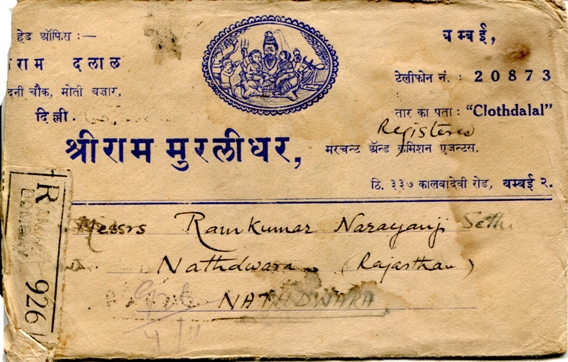 हेड ऑफिस :—
राम दलाल
चौक, मोती बजार,
दिल्ली
बम्बई,
टेलीफोन नं. : 20873
तार का पता : “Clothdalal”
Registered
श्रीराम मुरलीधर,
मरचन्ट ॲन्ड कमिशन एजन्टस.
ठि. ३३७ कालबादेवी रोड, बम्बई २.
R
926
Messrs Ramkumar Narayanji Sethi
Nathdwara (Rajasthan)
NATHDWARA